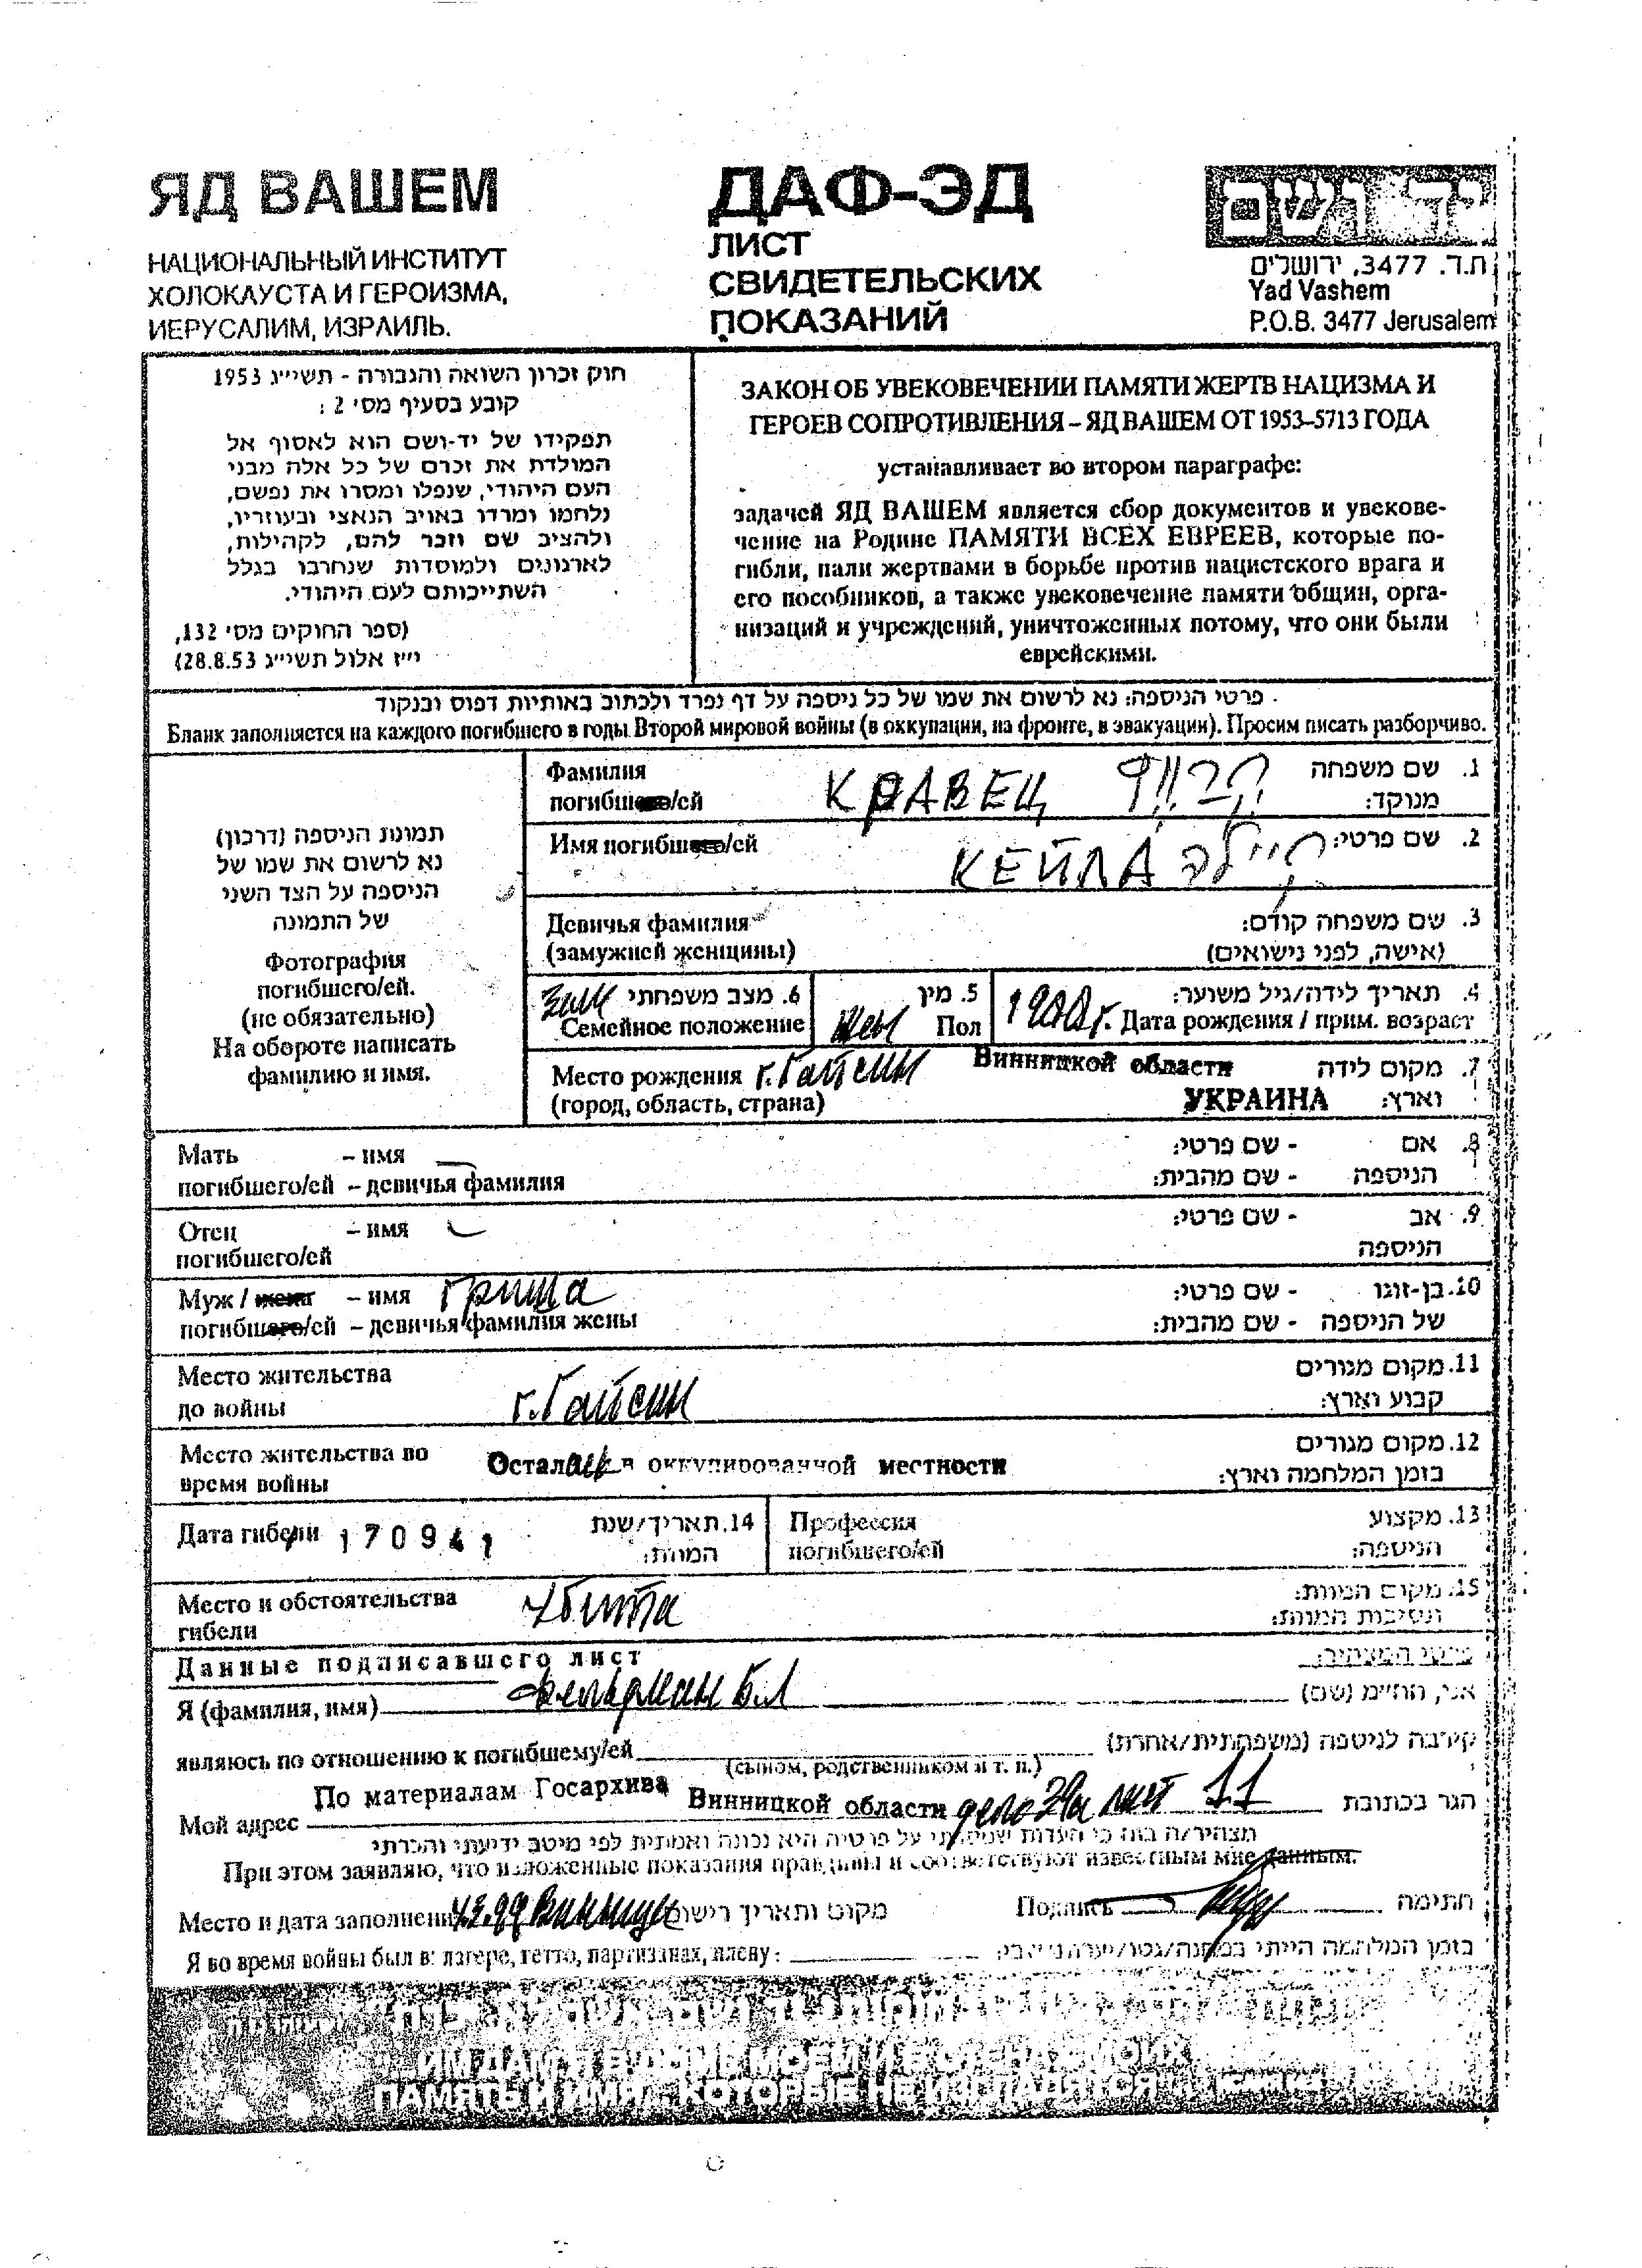 ЯД ВАШЕМ
НАЦИОНАЛЬНЫЙ ИНСТИТУТ
ХОЛОКАУСТА И ГЕРОИЗМА,
ИЕРУСАЛИМ, ИЗРАИЛЬ.
ДАФ-ЭД
ЛИСТ
СВИДЕТЕЛЬСКИХ
ПОКАЗАНИЙ
יד ושם
ת.ד. 3477, ירושלים
Yad Vashem
P.O.B. 3477 Jerusalem
חוק זכרון השואה והגבורה - תשי״ג 1953
קובע בסעיף מס׳ 2 :
תפקידו של יד-ושם הוא לאסוף אל
המולדת את זכרם של כל אלה מבני
העם היהודי, שנפלו ומסרו את נפשם,
נלחמו ומרדו באויב הנאצי ובעוזריו,
ולהציב שם וזכר להם, לקהילות,
לארגונים ולמוסדות שנחרבו בגלל
השתייכותם לעם היהודי.
(ספר החוקים מס׳ 132,
י״ז אלול תשי״ג 28.8.53)
ЗАКОН ОБ УВЕКОВЕЧЕНИИ ПАМЯТИ ЖЕРТВ НАЦИЗМА И
ГЕРОЕВ СОПРОТИВЛЕНИЯ – ЯД ВАШЕМ ОТ 1953–5713 ГОДА
устанавливает во втором параграфе:
задачей ЯД ВАШЕМ является сбор документов и увекове-
чение на Родине ПАМЯТИ ВСЕХ ЕВРЕЕВ, которые по-
гибли, пали жертвами в борьбе против нацистского врага и
его пособников, а также увековечение памяти общин, орга-
низаций и учреждений, уничтоженных потому, что они были
еврейскими.
פרטי הניספה: נא לרשום את שמו של כל ניספה על דף נפרד ולכתוב באותיות דפוס ובנקוד
Бланк заполняется на каждого погибшего в годы Второй мировой войны (в оккупации, на фронте, в эвакуации). Просим писать разборчиво.
תמונת הניספה (דרכון)
נא לרשום את שמו של
הניספה על הצד השני
של התמונה
Фотография
погибшего/ей.
(не обязательно)
На обороте написать
фамилию и имя.
Фамилия КРАВЕЦ קרבץ 1. שם משפחה
погибшего/ей מנוקד:
Имя погибшего/ей КЕЙЛА קיילה 2. שם פרטי:
Девичья фамилия 3. שם משפחה קודם:
(замужней женщины) (אישה, לפני נישואים)
зам 6. מצב משפחתי 5. מין 4. תאריך לידה/גיל משוער:
Семейное положение жен Пол 1900г. Дата рождения / прим. возраст
Место рождения г. Гайсин Винницкой области 7. מקום לידה
(город, область, страна) УКРАИНА וארץ:
Мать – имя — 8. אם - שם פרטי:
погибшего/ей – девичья фамилия הניספה - שם מהבית:
Отец – имя 9. אב - שם פרטי:
погибшего/ей הניספה
Муж / жена – имя Гриша 10. בן-זוגו - שם פרטי:
погибшего/ей – девичья фамилия жены של הניספה - שם מהבית:
Место жительства 11. מקום מגורים
до войны г. Гайсин קבוע וארץ:
Место жительства во Осталась в оккупированной местности 12. מקום מגורים
время войны בזמן המלחמה וארץ:
Дата гибели 170941 14. תאריך/שנת Профессия 13. מקצוע
המוות: погибшего/ей הניספה:
Место и обстоятельства Убита 15. מקום המוות:
гибели ונסיבות המוות:
Данные подписавшего лист פרטי המצהיר:
Я (фамилия, имя) Фельдман Б.Л אני, החיימ (שם)
являюсь по отношению к погибшему/ей קירבה לניספה (משפחתית/אחרת)
(сыном, родственником и т. п.)
По материалам Госархива Винницкой области дело лист 11
Мой адрес הגר בכתובת
מצהיר/ה בזה כי העדות שמסרתי על פרטיה היא נכונה ואמתית לפי מיטב ידיעתי והכרתי
При этом заявляю, что изложенные показания правдивы и соответствуют известным мне данным.
Место и дата заполнения מקום ותאריך רישום Подпись חתימה
Я во время войны был в: лагере, гетто, партизанах, плену: בזמן המלחמה הייתי
ИМ ДАМ Я В ДОМЕ МОЕМ И В СТЕНАХ МОИХ
ПАМЯТЬ И ИМЯ, КОТОРЫЕ НЕ ИЗГЛАДЯТСЯ